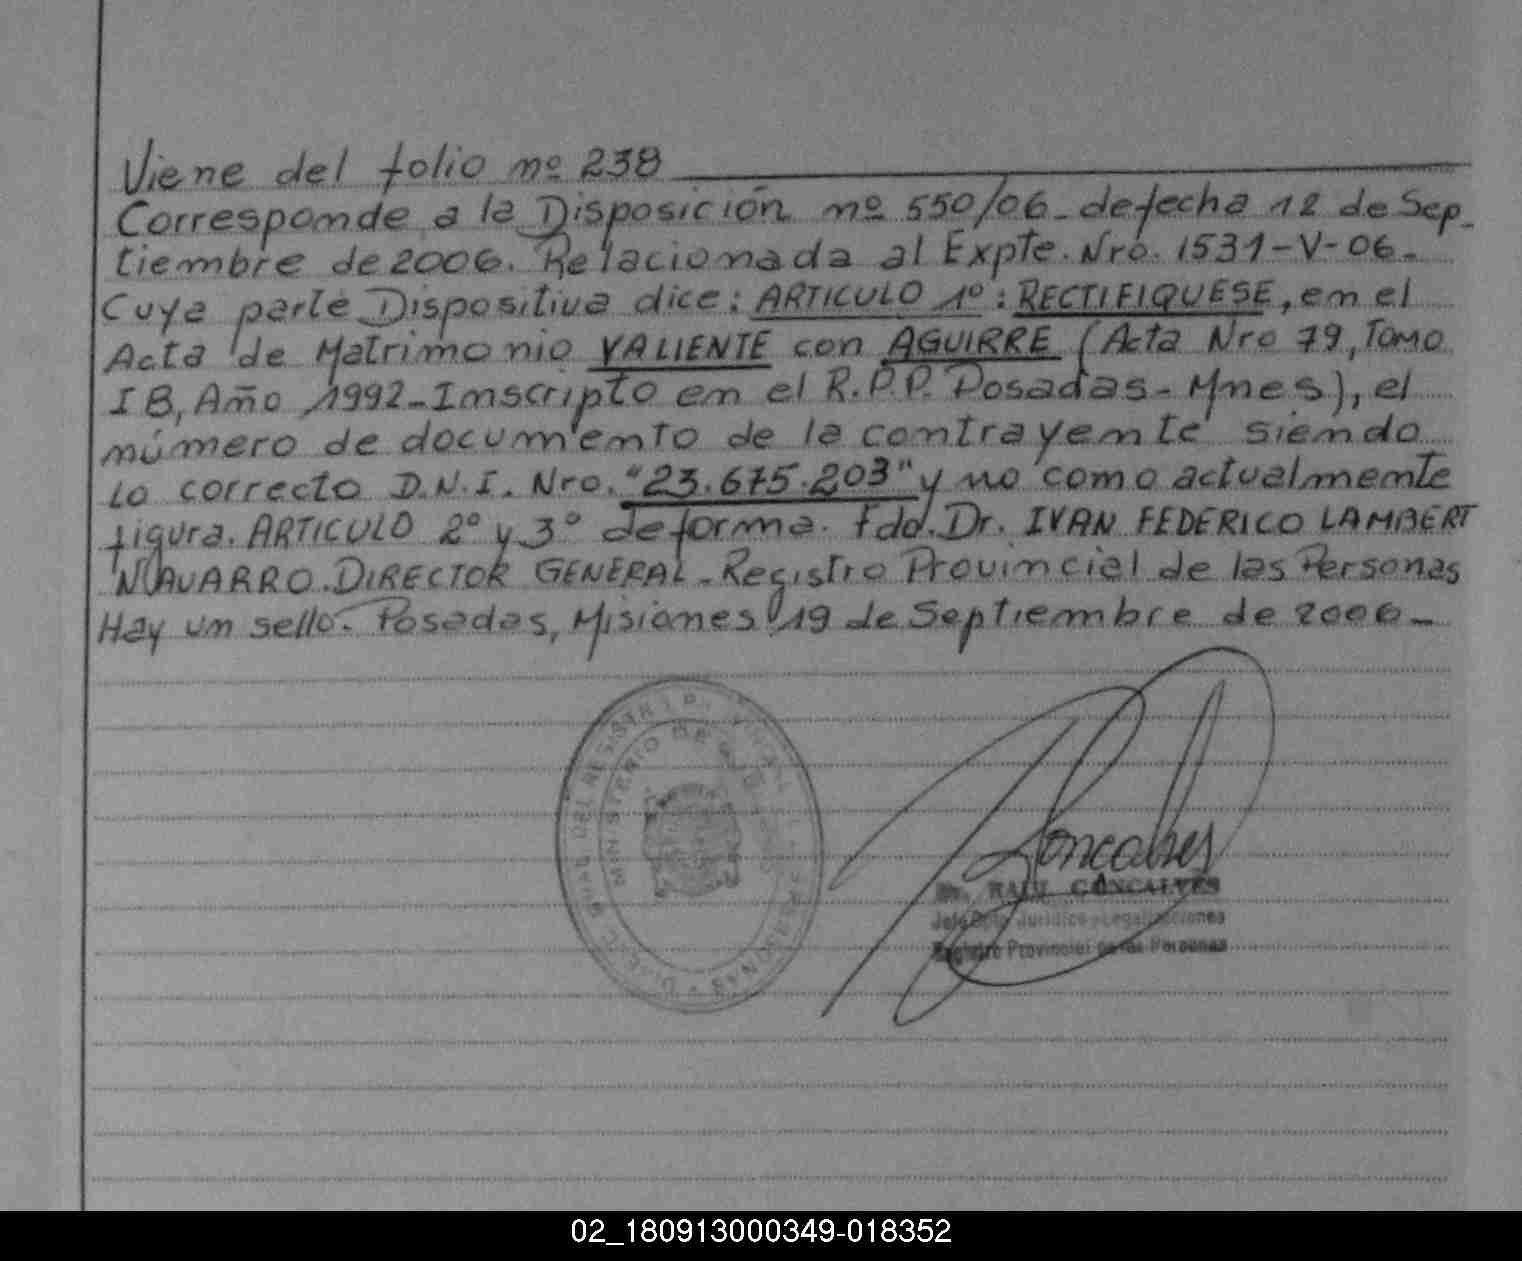 Viene del folio nº 238
Corresponde a la Disposición nº 550/06_ de fecha 12 de Sep_
tiembre de 2006. Relacionada al Expte. Nro. 1531-V-06_
Cuya parte Dispositiva dice: ARTICULO 1º: RECTIFIQUESE, en el
Acta de Matrimonio VALIENTE con AGUIRRE (Acta Nro 79, Tomo
I B, Año 1992_Inscripto en el R.P.P. Posadas-Mnes), el
número de documento de la contrayente siendo
lo correcto D.N.I. Nro. "23.675.203" y no como actualmente
figura. ARTICULO 2º y 3º de forma. Fdo. Dr. IVAN FEDERICO LAMBERT
NAVARRO. DIRECTOR GENERAL_Registro Provincial de las Personas
Hay un sello. Posadas, Misiones 19 de Septiembre de 2006_
MINISTERIO DE
Goncalves
RAUL GONCALVES
Jefe Dpto. Jurídico y Legalizaciones
Registro Provincial de las Personas
02_180913000349-018352